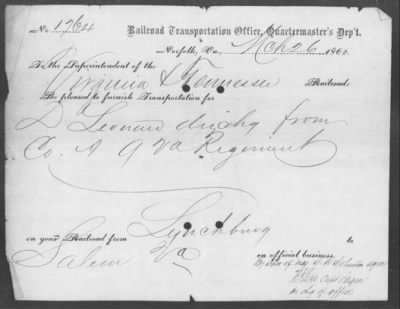 No. 1764 Railroad Transportation Office, Quartermaster's Dep't.
Norfolk, Va., Mch 26 1862
To the Superintendent of the
Virginia & Tennessee Railroad:
Be pleased to furnish Transportation for
D Leonard dischg from
Co. A 9 Va Regiment
on your Railroad from Lynchburg to
Salem Va on official business.
By order of Maj
Capt
in chg of office